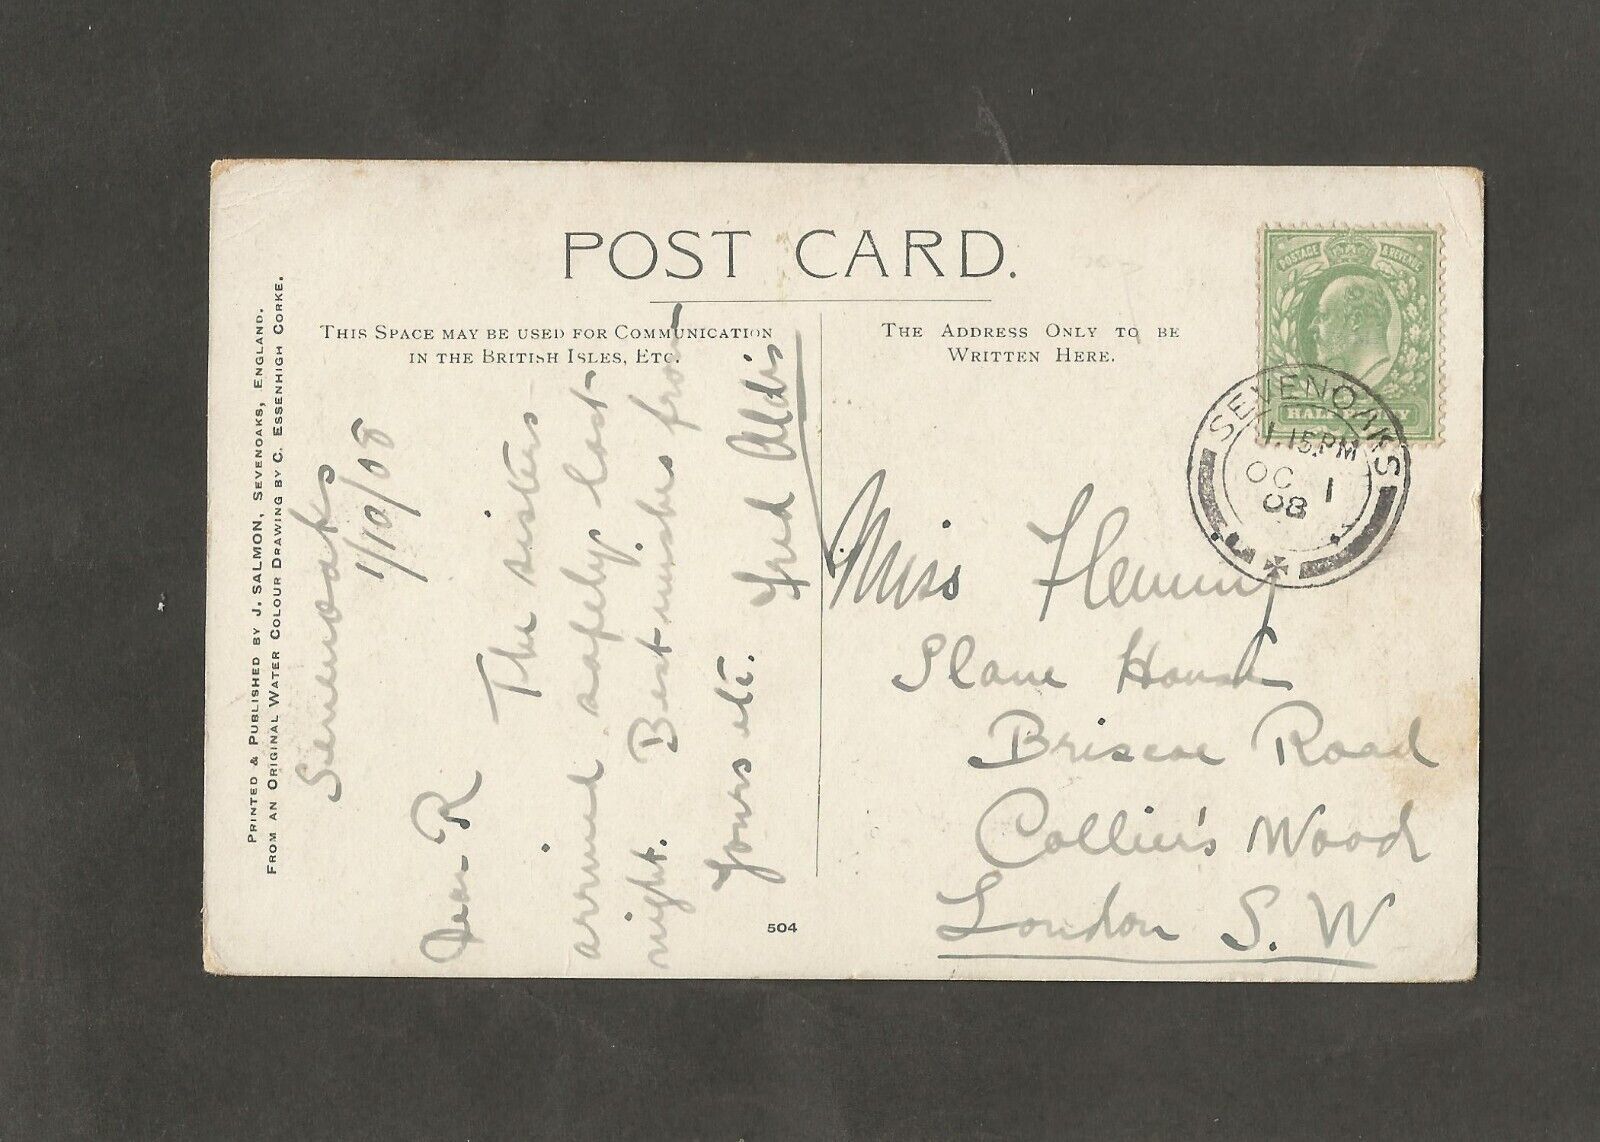 POST CARD.
THIS SPACE MAY BE USED FOR COMMUNICATION
IN THE BRITISH ISLES, ETC.
THE ADDRESS ONLY TO BE
WRITTEN HERE.
PRINTED & PUBLISHED BY J. SALMON, SEVENOAKS, ENGLAND.
FROM AN ORIGINAL WATER COLOUR DRAWING BY C. ESSENHIGH CORKE.
Sevenoaks
1/10/08
Dear R
The sisters
arrived safely last
night. Best wishes from
Yours etc. Fred Aldis
504
POSTAGE & REVENUE
HALF PENNY
SEVENOAKS
1.15PM
OC 1
08
Miss Fleming
Slane House
Briscoe Road
Collier's Wood
London S. W